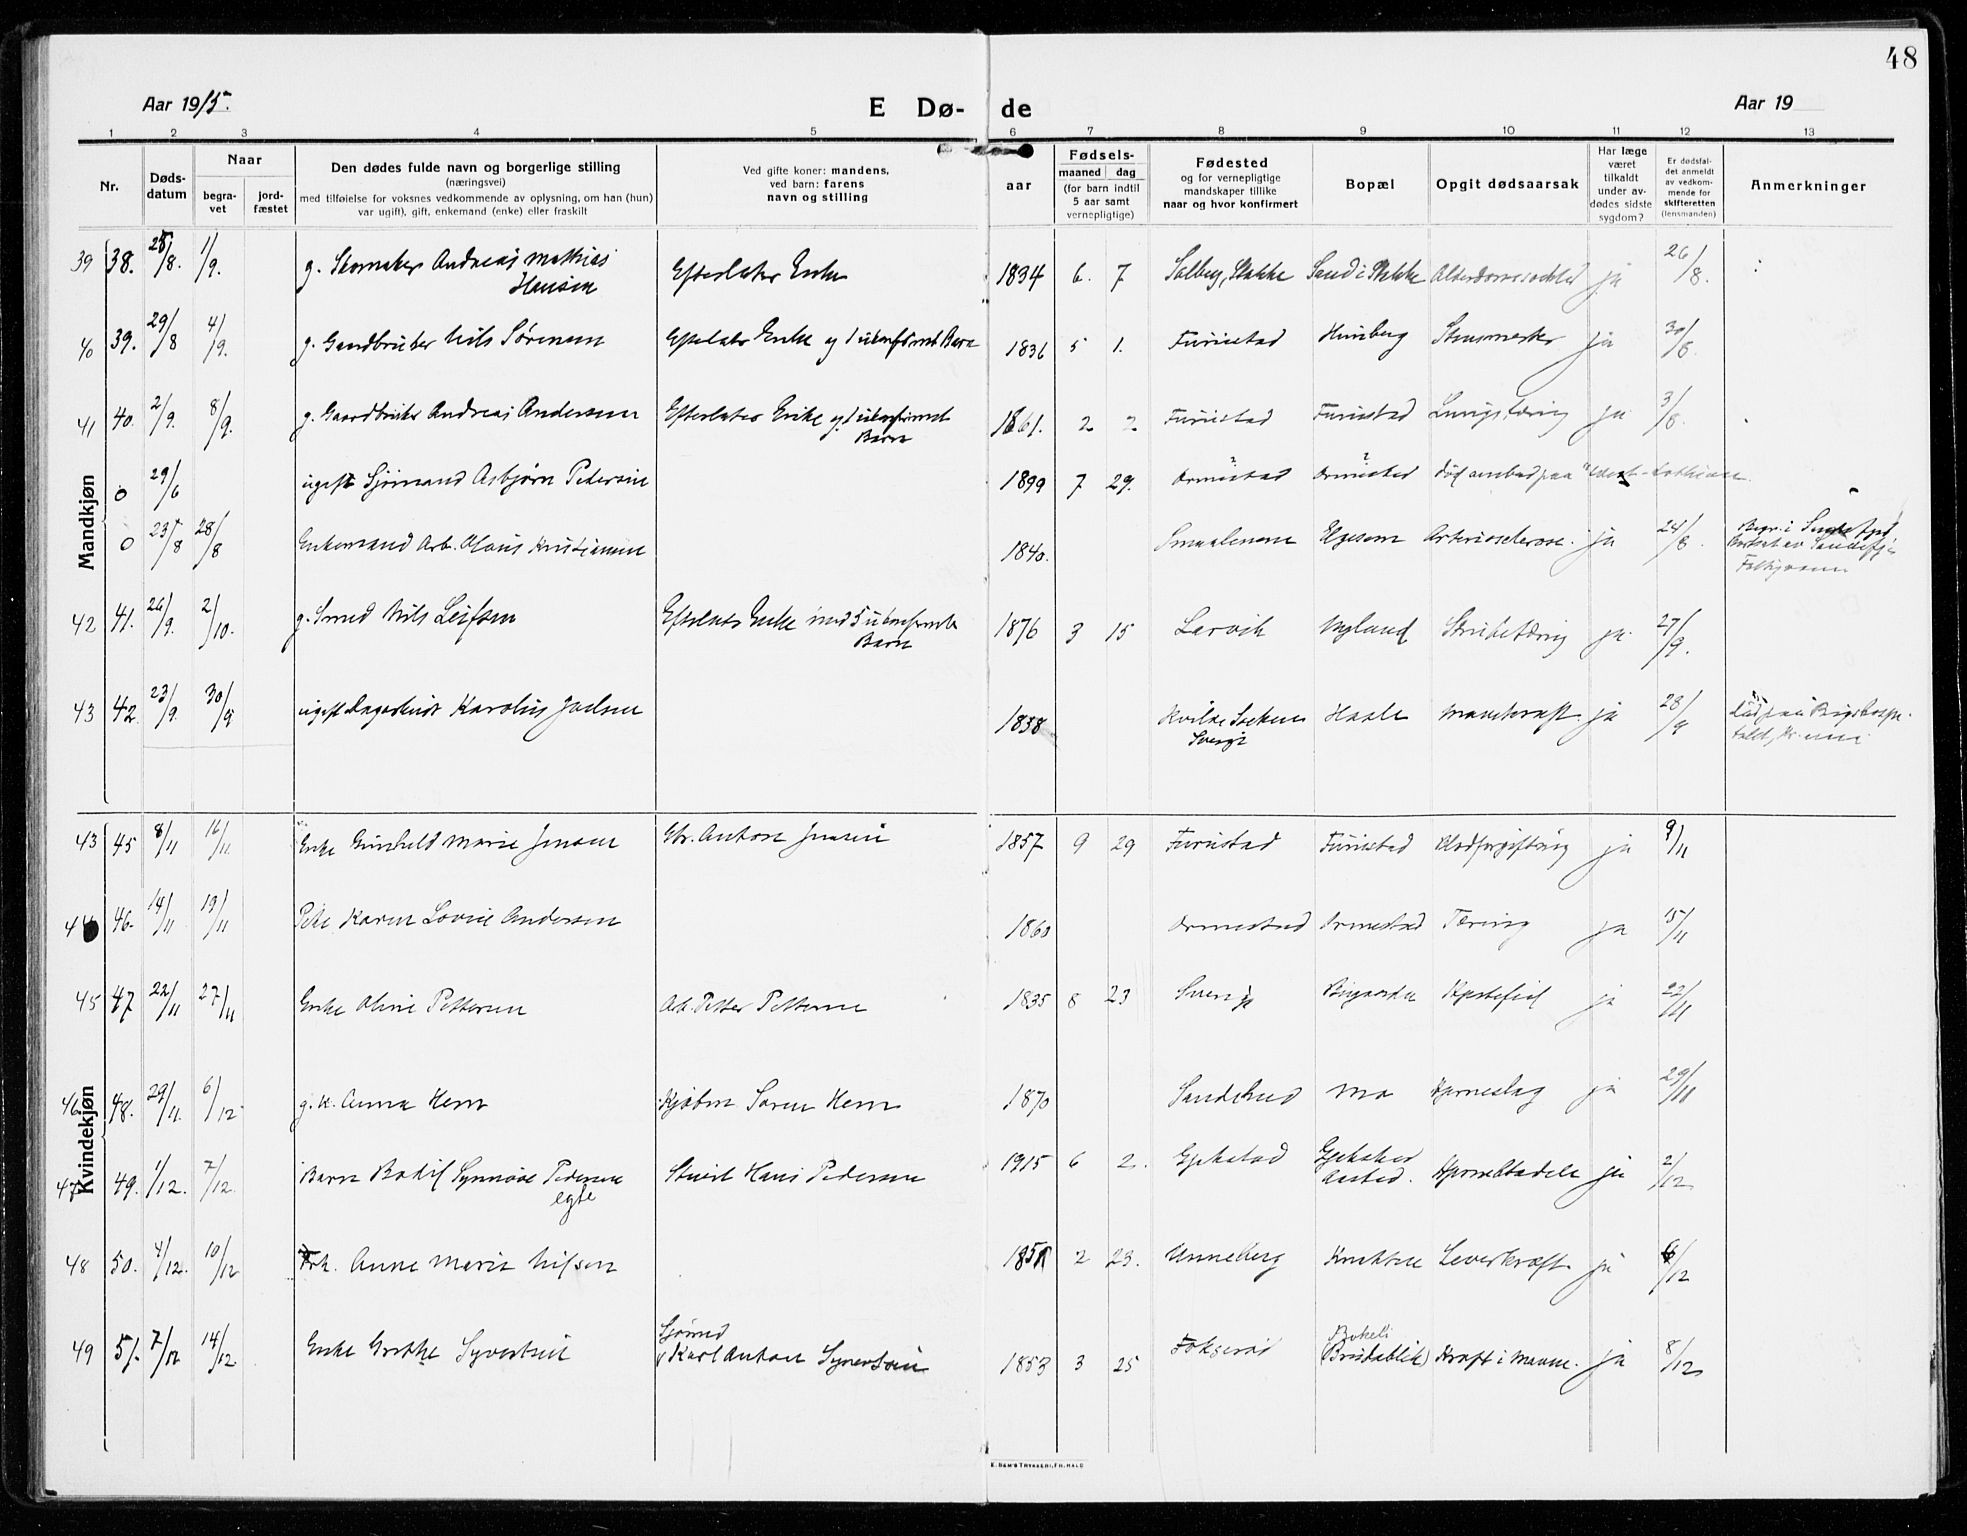 48
Aar 1915.
E Dø-de
Aar 19
1 2 3 4 5 6 7 8 9 10 11 12 13
Nr.
Døds-
datum
Naar
begra-
vet
jord-
fæstet
Den dødes fulde navn og borgerlige stilling
(næringsvei)
med tilføielse for voksnes vedkommende av oplysning, om han (hun)
var ugift), gift, enkemand (enke) eller fraskilt
Ved gifte koner: mandens,
ved barn: farens
navn og stilling
Fødsels-
aar
maaned dag
(for barn indtil
5 aar samt
vernepligtige)
Fødested
og for vernepligtige
mandskaper tillike
naar og hvor konfirmert
Bopæl
Opgit dødsaarsak
Har læge
været
tilkaldt
under av-
dødes sidste
sygdom?
Er dødsfal-
det anmeldt
av vedkom-
mende for
skifteretten
(lensmanden)
Anmerkninger
Mandkjøn
39 38. 25/8. 1/9. g. Skomaker Andreas Mathias Efterlater Enke 1834 6. 7 Solberg, Stokke Sand i Stokke ja 26/8.
Hansen
40 39. 29/8 4/9. g. Gaardbruker Nils Sørensen Efterlater Enke og 1 ukonfirmert Barn 1836 5 1. Furustad ja 30/8.
41 40. 2/9. 8/9. g. Gaardbruker Andreas Andersen Efterlater Enke og 1 ukonfirmert 1861. 2 2 Furustad Furustad Lungetæring ja 3/8.
Barn
0 29/6 ugift Sjømand Asbjørn Pedersen 1899 7 29. Ormestad Ormestad
0 23/8 28/8 Enkemand Arb. Olaus Kristiansen 1840. Smaalenene Elgesem Arteriosclerose. ja 24/8. Begr. i Sandefjord
42 41. 26/9. 2/10. g. Smed Nils Leifsen Efterlater Enke med 5 ukonfirmerte 1876 3 15 Larvik Nyland Strubetæring ja. 27/9.
Barn
43 42. 23/9. 30/9 ugift Karolus Joelsen 1838 Kville Socken Haale Mavekræft ja 28/9
Sverige
Kvindekjøn
43 45 8/11 16/11 Enke Gunhild Marie Jensen Gbr. Anton Jensen 1857 9 29 Furustad Furustad Blodforgiftning ja 9/11
44 46. 14/11 19/11 Pike Karen Lovise Andersen 1860 Ormestad Ormestad Tæring ja 15/11
45 47 22/11 27/11 Enke Oline Pettersen Arb. Petter Pettersen 1835 8 23 Hjertefeil ja 22/11
46 48. 29/11. 6/12. g. k. Anna Hem Kjøbm. Søren Hem 1870 Mo Hjerneslag ja 29/11
47 49. 1/12. 7/12. Barn Bodil Synnøve Pedersen Stuert Hans Pedersen 1915 6 2. Gjekstad ja 2/12
egte
48 50. 4/12. 10/12 Frk. Anne Marie Nilsen 1851 2 23. Unneberg Leverkræft ja 6/12
49 51. 7/12 14/12 Enke Grethe Syvertsen Sjømd 1853 3 25 Fokserød Kræft i Maven. ja 8/12
Karl Anton Syvertsen
E. SEM'S TRYKKERI, FR.HALD